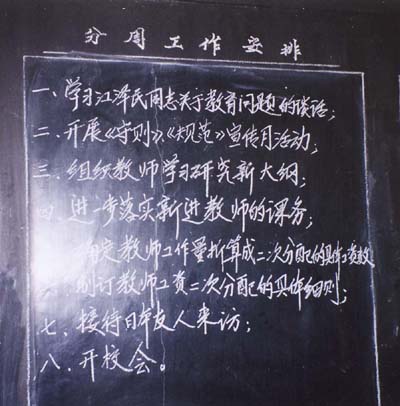 分周工作安排
一、学习江泽民同志关于教育问题的谈话；
二、开展《守则》、《规范》宣传月活动；
三、组织教师学习研究新大纲；
四、进一步落实新进教师的课务；
确定教师工作量折算成二次分配的具体工资数
制订教师工资二次分配的具体细则；
七、接待日本友人来访；
八、开校会。